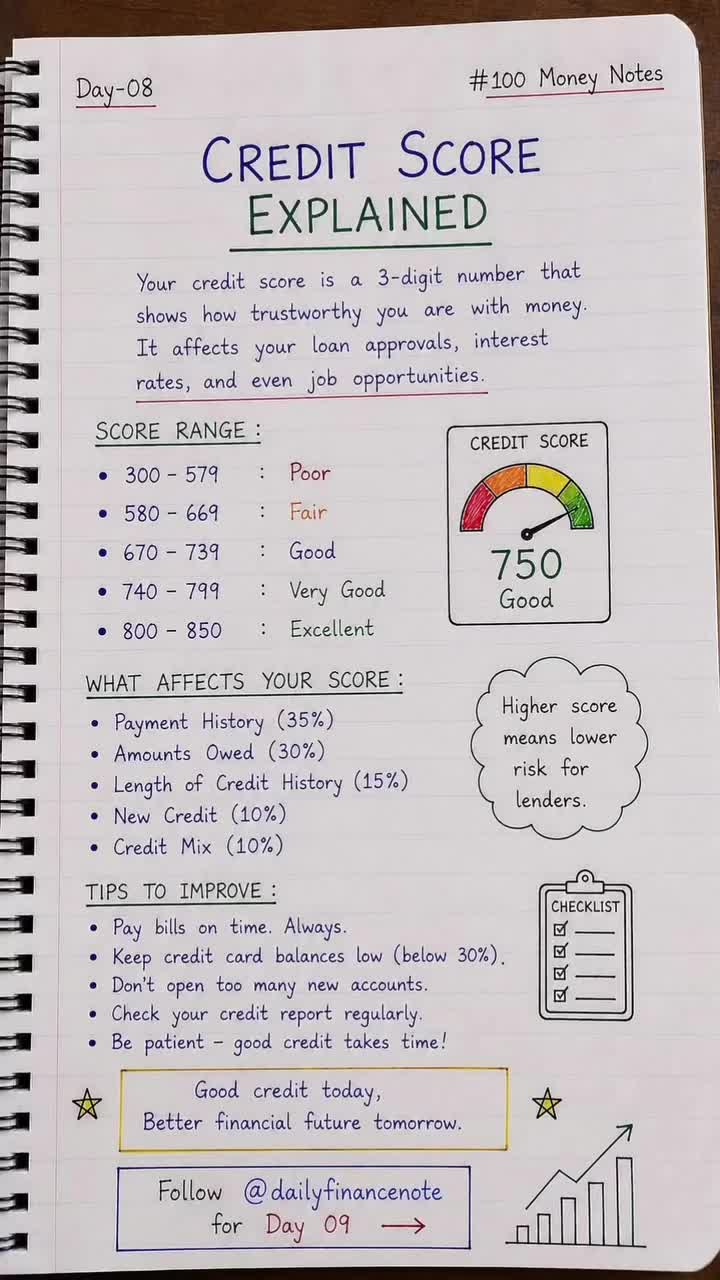 Day-08
#100 Money Notes
CREDIT SCORE
EXPLAINED
Your credit score is a 3-digit number that
shows how trustworthy you are with money.
It affects your loan approvals, interest
rates, and even job opportunities.
SCORE RANGE :
• 300 - 579 : Poor
• 580 - 669 : Fair
• 670 - 739 : Good
• 740 - 799 : Very Good
• 800 - 850 : Excellent
CREDIT SCORE
750
Good
WHAT AFFECTS YOUR SCORE :
• Payment History (35%)
• Amounts Owed (30%)
• Length of Credit History (15%)
• New Credit (10%)
• Credit Mix (10%)
Higher score
means lower
risk for
lenders.
TIPS TO IMPROVE :
• Pay bills on time. Always.
• Keep credit card balances low (below 30%).
• Don't open too many new accounts.
• Check your credit report regularly.
• Be patient - good credit takes time!
CHECKLIST
Good credit today,
Better financial future tomorrow.
Follow @dailyfinancenote
for Day 09 →